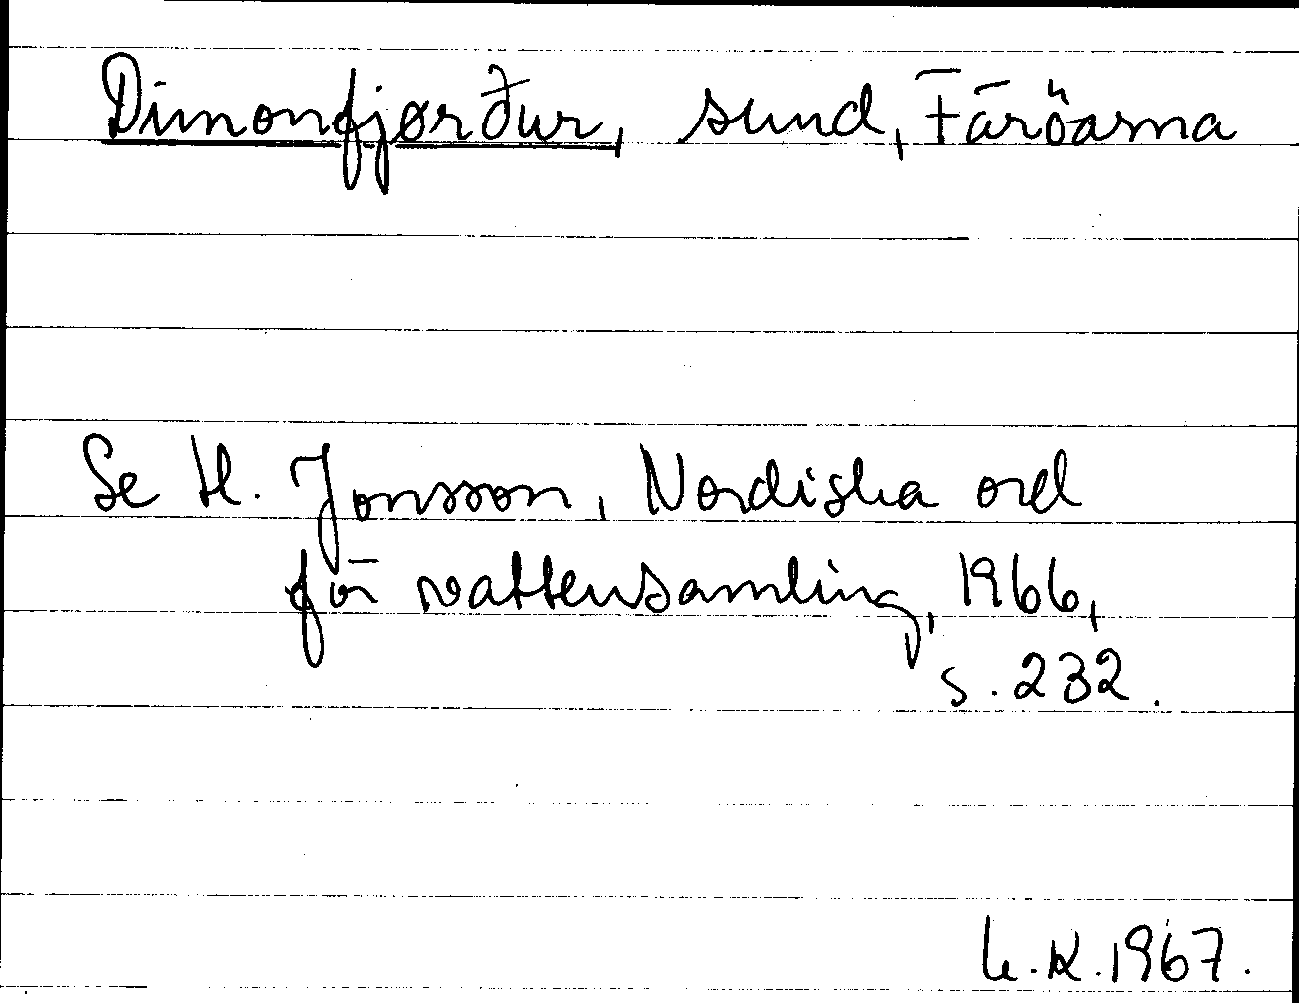 Dimonfjørður, sund, Färöarna
Se H. Jonsson, Nordiska ord
för vattensamling, 1966,
s. 232.
L.K. 1967.